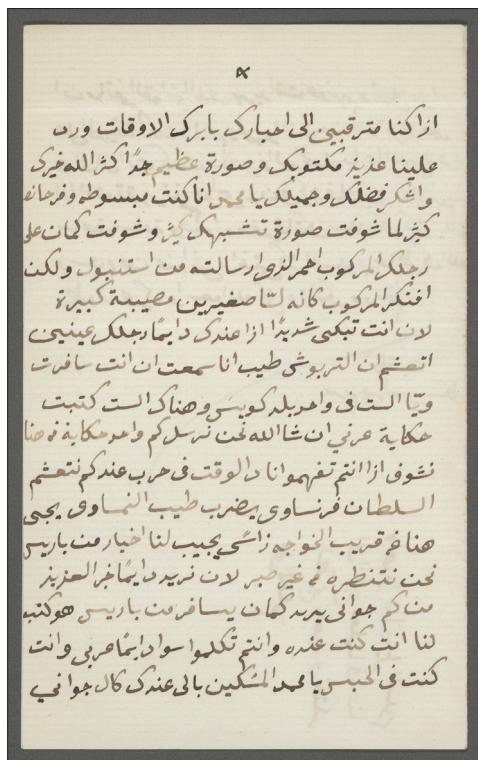 ازا كنا مترقبين الى اخبارك بابرك الاوقات ورد
علينا عذيذ مكتوبك وصورة عظيم جدًا كثر الله خيرك
واشكر فضلك وجميلك يا محمد انا كنت مبسوطه وفرحانه
كثير لما شوفت صورة تشبهك كثير وشوفت كمان على
رجلك المركوب احمر الذى ارسالته من استنبول ولكن
افتكر المركوب كانه لسّا صغيرين مصيبة كبيرة
لان انت تبكى شديدًا ازا عندك دايمًا رجلك عينين
اتعشم ان التربوش طيب انا سمعت ان انت سافرت
ويّا الست فى واحد بلد كويس وهناك الست كتبت
حكاية عربي ان شا الله نحن نرسل كم واحد حكاية من هنا
نشوف ازا انتم تفهموا نا دالوقت فى حرب عندكم نتعشم
السلطان فرنساوى يضرب طيب النمساوى يجى
هنا قريب الخواجه يجيب لنا اخبار من باريس
نحن ننتظره غير صبر لان نريد دايمًا خبر العزيز
منكم جوانى يريد كمان يسافر من باريس هو كتب
لنا انت كنت عنده وانتم تكلموا سوا دايمًا عربي وانت
كنت فى الحبس يا محمد المسكين بالى عندك كان جوانى